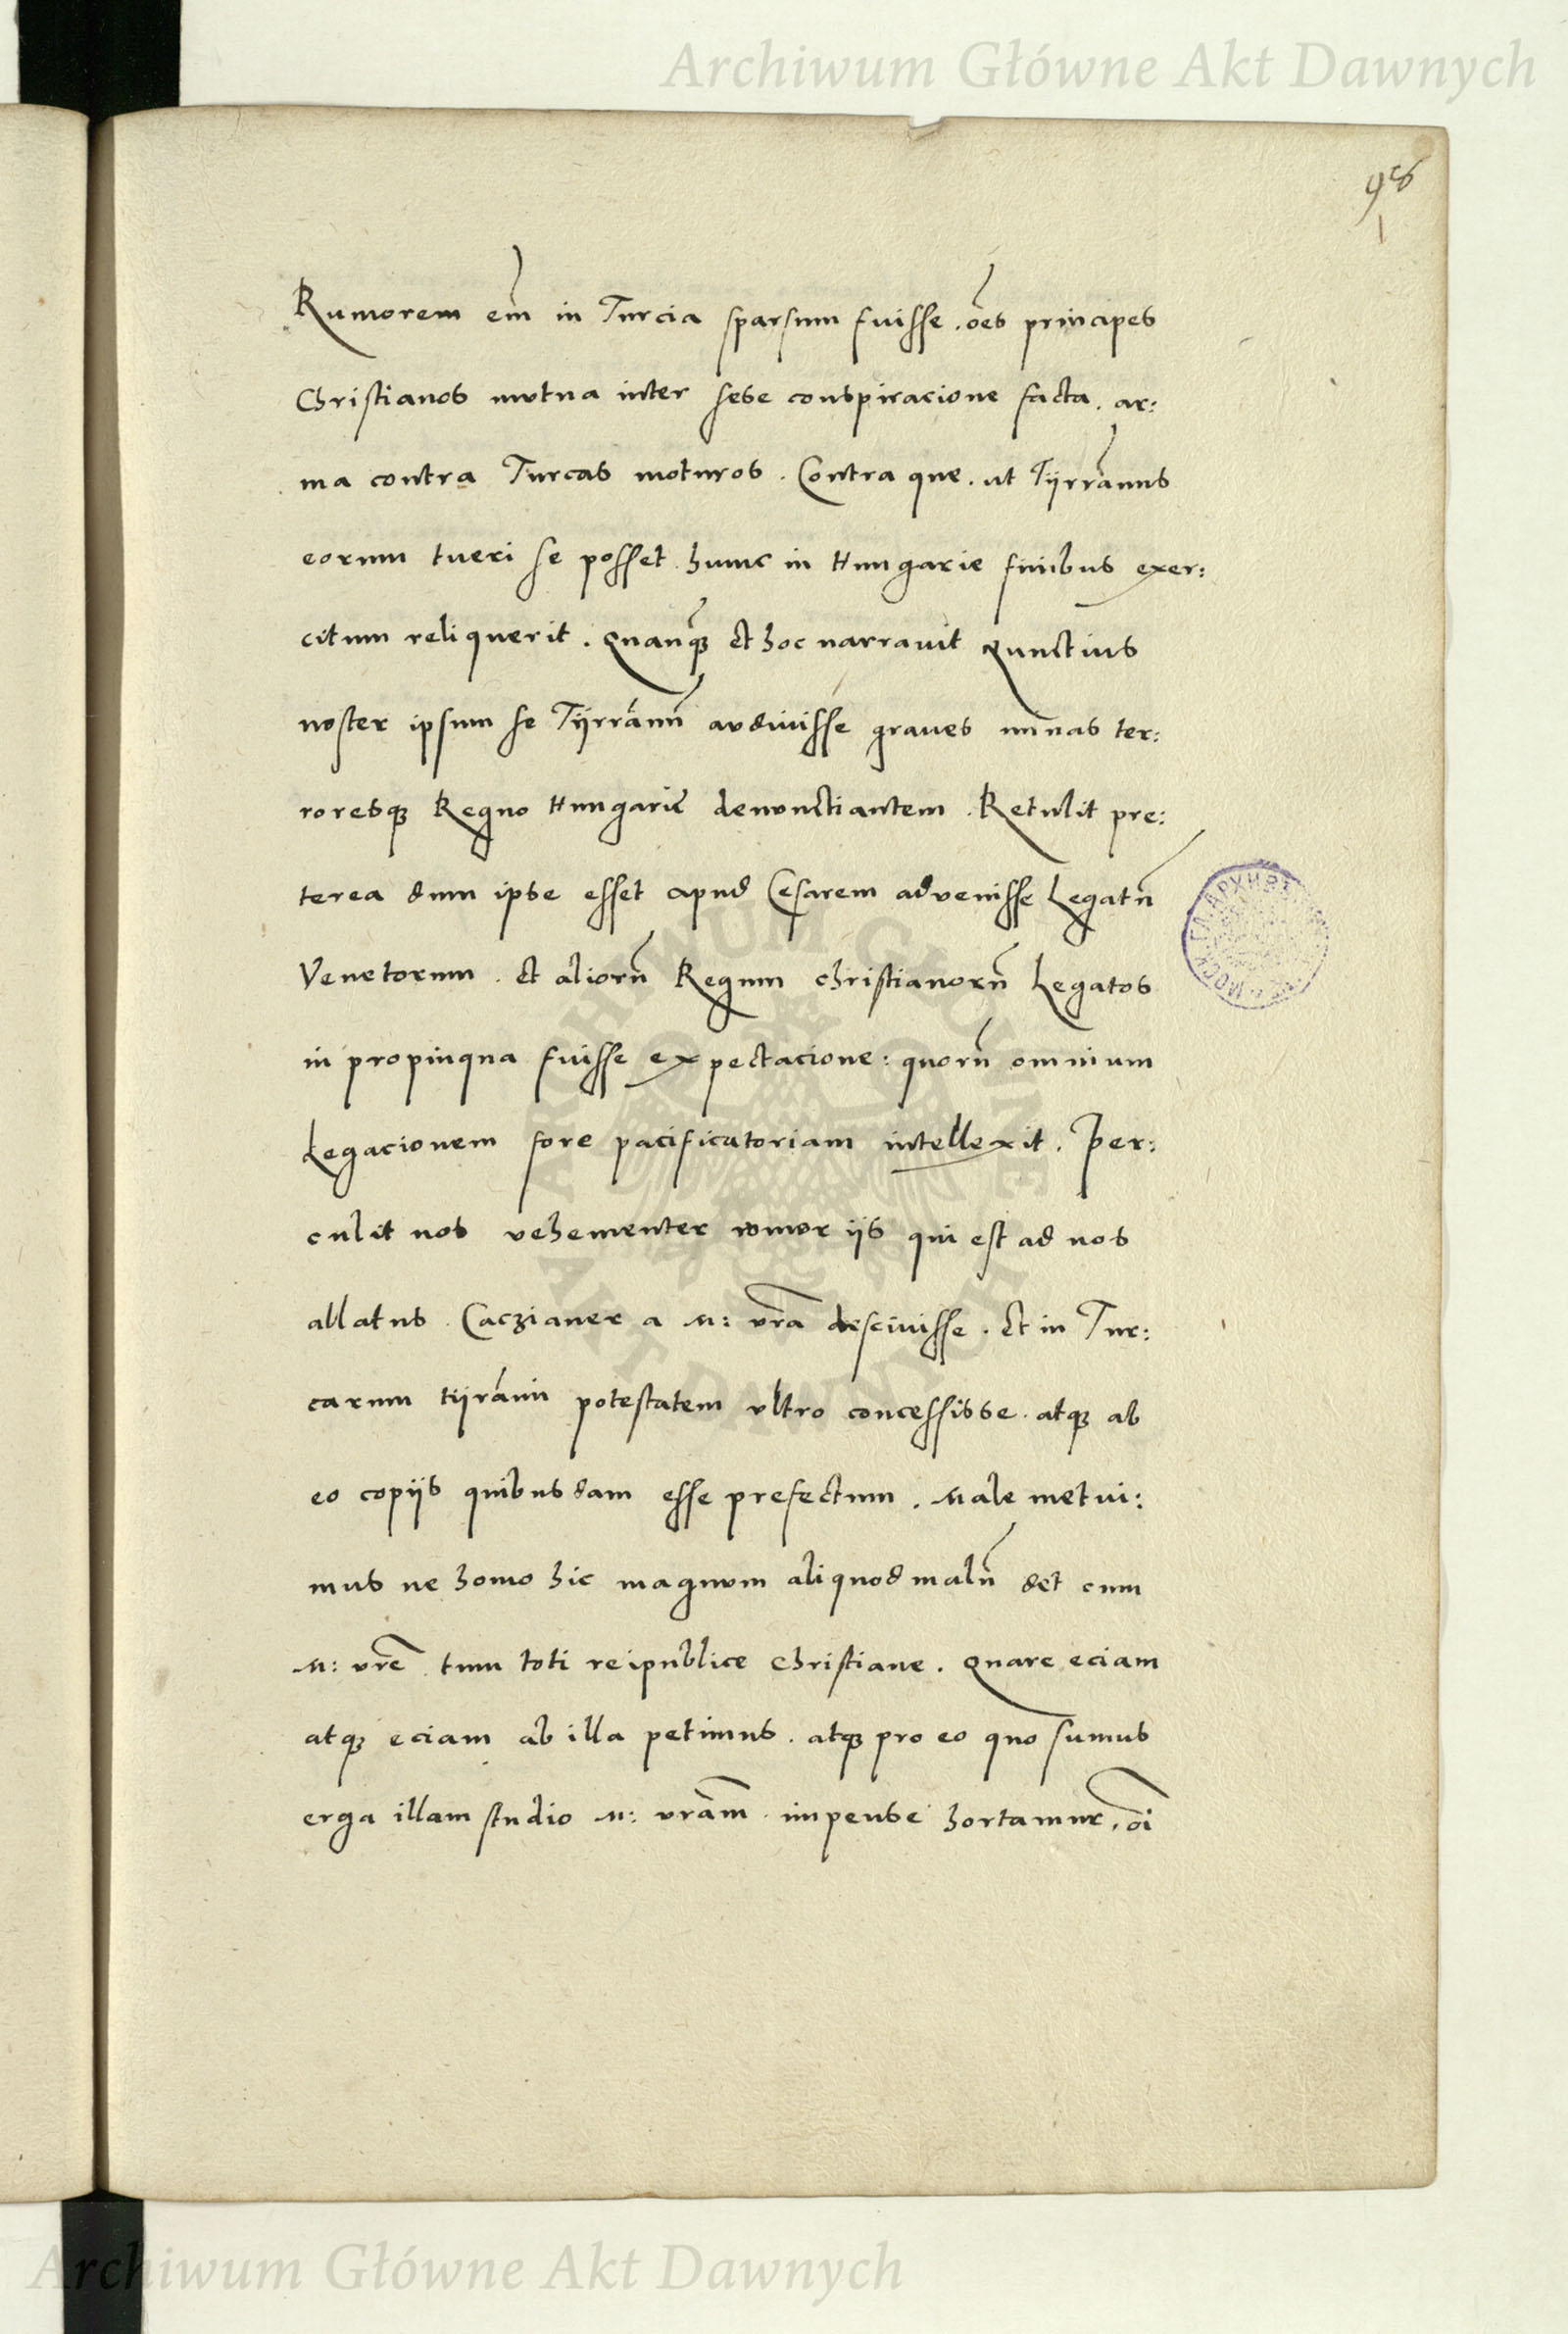 Archiwum Główne Akt Dawnych
98
Rumorem em̄ in Turcia sparsum fuisse . o͞es principes
Christianos mutua inter sese conspiracione facta . ar:
ma contra Turcas moturos . Contra que . ut Tÿrrānus
eorum tueri se posset . hunc in Hungarie finibus exer:
citum reliquerit . Quanq̄ȝ et hoc narravit Nunctius
noster ipsum se Tÿrrānū audivisse graves minas ter:
roresqȝ Regno Hungarie denunctiantem . Retulit pre:
terea dum ipse esset apud Cesarem advenisse Legatū
Venetorum . et aliorū Regum christianorū Legatos
in propinqua fuisse expectacione : quorū omnium
Legacionem fore pacificatoriam intellexit . Per:
culit nos vehementer rumor iis qui est ad nos
allatus . Caczianer a M: vr̄a descivisse . Et in Tur:
carum tÿrānni potestatem ultro concessisse . atqȝ ab
eo copiis quibusdam esse prefectum . Male metui:
mus ne homo hic magnum aliquod malū det cum
M: vr̄e . tum toti reipublice Christiane . Quare eciam
atqȝ eciam ab illa petimus . atqȝ pro eo quo sumus
erga illam studio M: vr̄am . impense hortamur . o͞i
ARCHIWUM GŁÓWNE
AKT DAWNYCH
Archiwum Główne Akt Dawnych